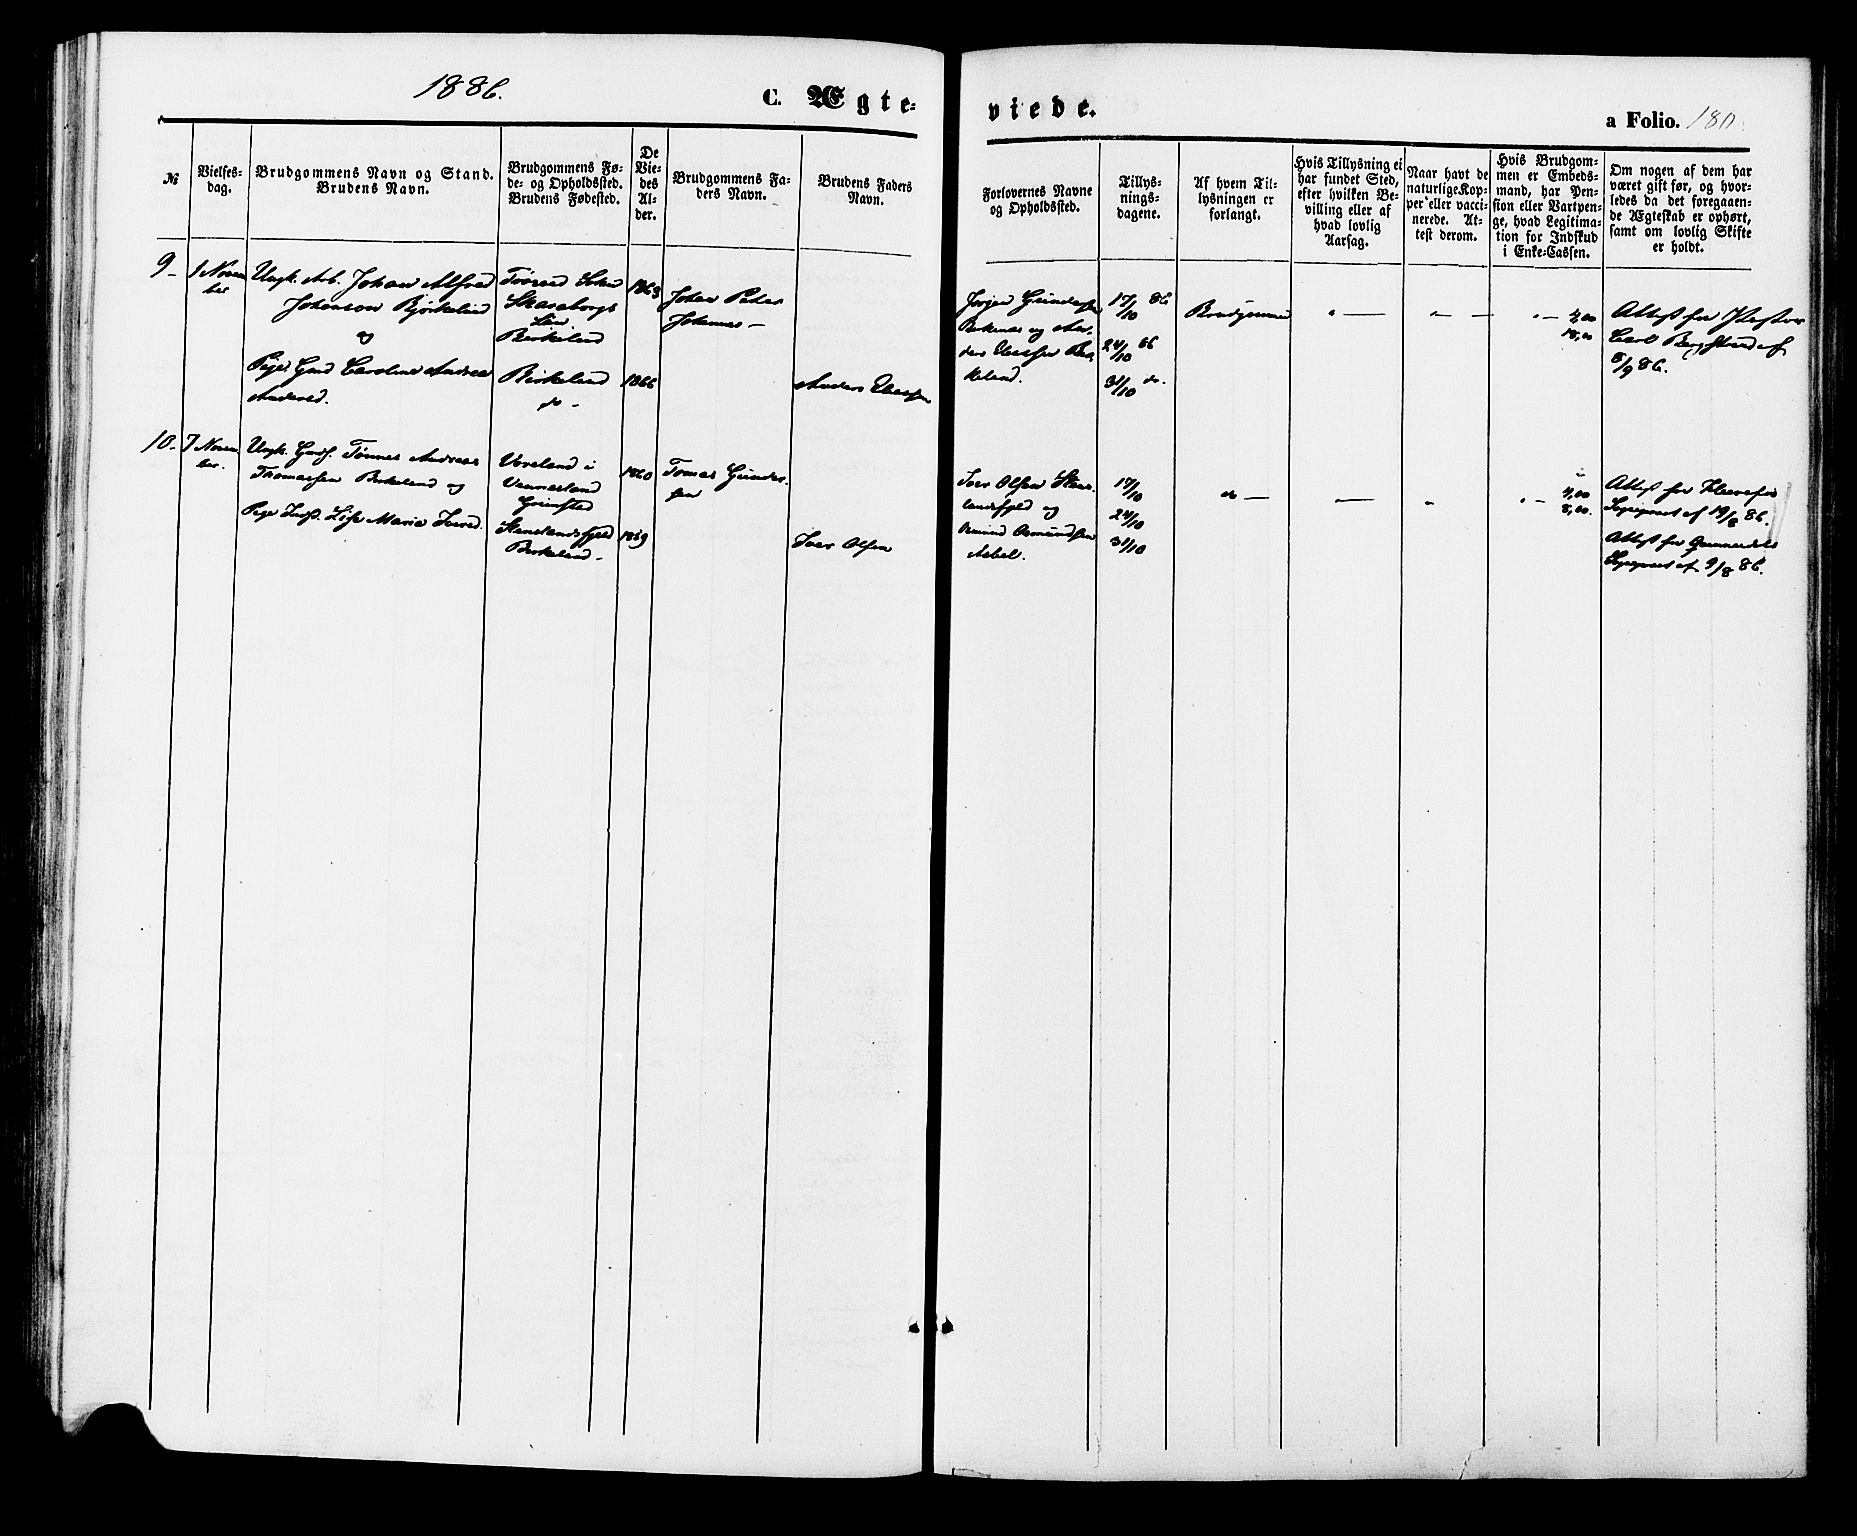 1886.
C. Ægte-
viede.
a Folio. 180
№
Vielses-
dag.
Brudgommens Navn og Stand.
Brudens Navn.
Brudgommens Fø-
de- og Opholdssted.
Brudens Fødested.
De
Vie-
des
Al-
der.
Brudgommens Fa-
ders Navn.
Brudens Faders
Navn.
Forlovernes Navne
og Opholdssted.
Tillys-
nings-
dagene.
Af hvem Til-
lysningen er
forlangt.
Hvis Tillysning ei
har fundet Sted,
efter hvilken Be-
villing eller af
hvad lovlig
Aarsag.
Naar havt de
naturlige Kop-
per eller vacci-
nerede. At-
test derom.
Hvis Brudgom-
men er Embeds-
mand, har Pen-
sion eller Vartpen-
ge, hvad Legitima-
tion for Indskud
i Enke-Cassen.
Om nogen af dem har
været gift før, og hvor-
ledes da det foregaaen-
de Ægteskab er ophørt,
samt om lovlig Skifte
er holdt.
9-
1 Novem
ber
Ungk. Arb. Johan Alfred
Johanson Bjørkelund
og
Pige Gmd Caroline Andrea
Andersd.
Skaraborgs
Län
Birkeland
Birkeland
do -
1863
1866
Johan Peter
Johannes-
Anders
Jørgen Gunders
og An-
ders
keland.
17/10 86
24/10 86
31/10 do.
Brudgommen
" —
" —
" — 4,00
18,00
Attest fra Pastor
Carl Bergstrand af
8/9 86.
10-
7 Novem
ber.
Ungk. Gmdf. Tønnes Andreas
Thomassen Birkeland og
Pige Lise Maria Iversd.
i
Vennesland
Grimsted
Birkeland -
1860
1869
Tomas Gunder-
sen
Iver Olsen
Iver Olsen
og
Osmund Osmundsen
17/10
24/10
31/10
do —
—
"
" — 4,00
8,00.
Attest fra
af 19/8 86.
Attest fra
af 9/8 86.